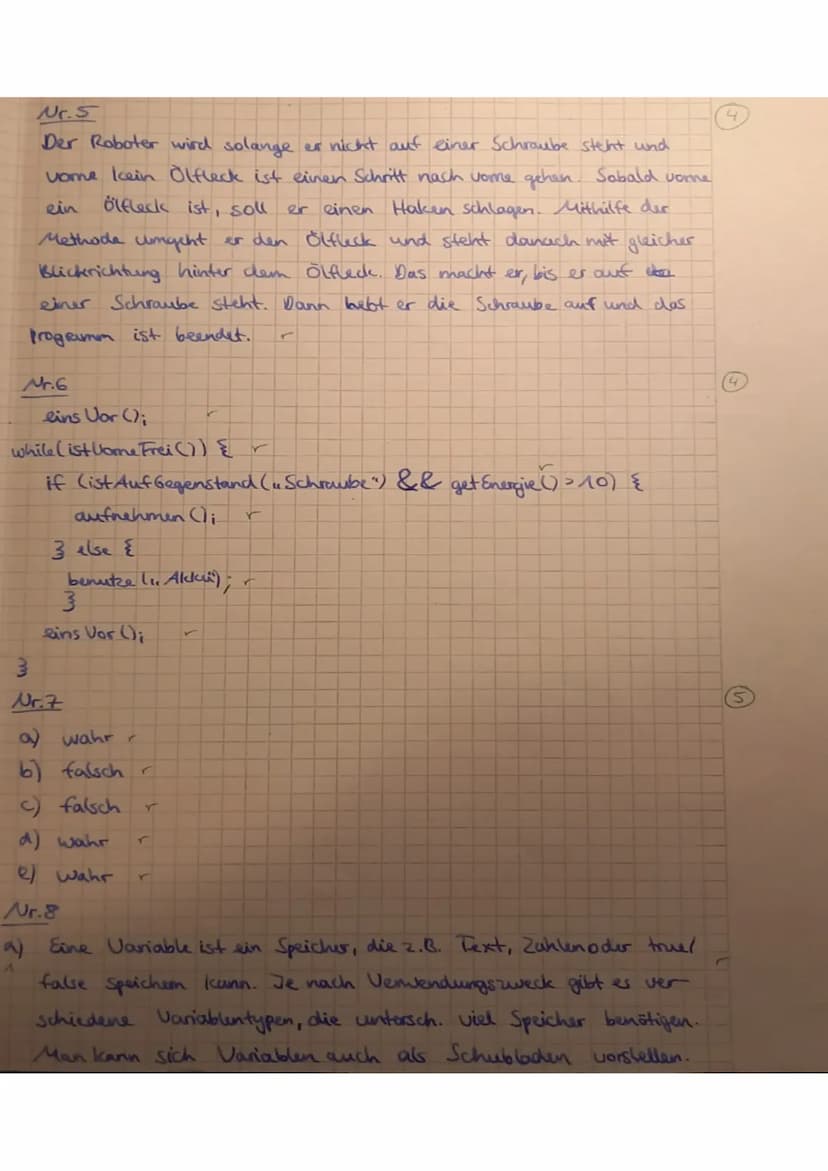 Nr. 5
4
Der Roboter wird solange er nicht auf einer Schraube steht und
vorne kein Ölfleck ist einen Schritt nach vorne gehen. Sobald vorne
ein Ölfleck ist, soll er einen Haken schlagen. Mithilfe der
Methode umgeht er den Ölfleck und steht danach mit gleicher
Blickrichtung hinter dem Ölfleck. Das macht er, bis er auf
einer Schraube steht. Dann hebt er die Schraube auf und das
Programm ist beendet.
Nr. 6
4
einsVor();
while(istVorneFrei()) {
if (istAufGegenstand(„Schraube") && getEnergie()>10) {
aufnehmen();
} else {
benutze(„Akku");
}
einsVor();
}
Nr. 7
5
a) wahr
b) falsch
c) falsch
d) wahr
e) wahr
Nr. 8
a) Eine Variable ist ein Speicher, die z.B. Text, Zahlen oder true/
false speichern kann. Je nach Verwendungszweck gibt es ver-
schiedene Variablentypen, die untersch. viel Speicher benötigen.
Man kann sich Variablen auch als Schubladen vorstellen.